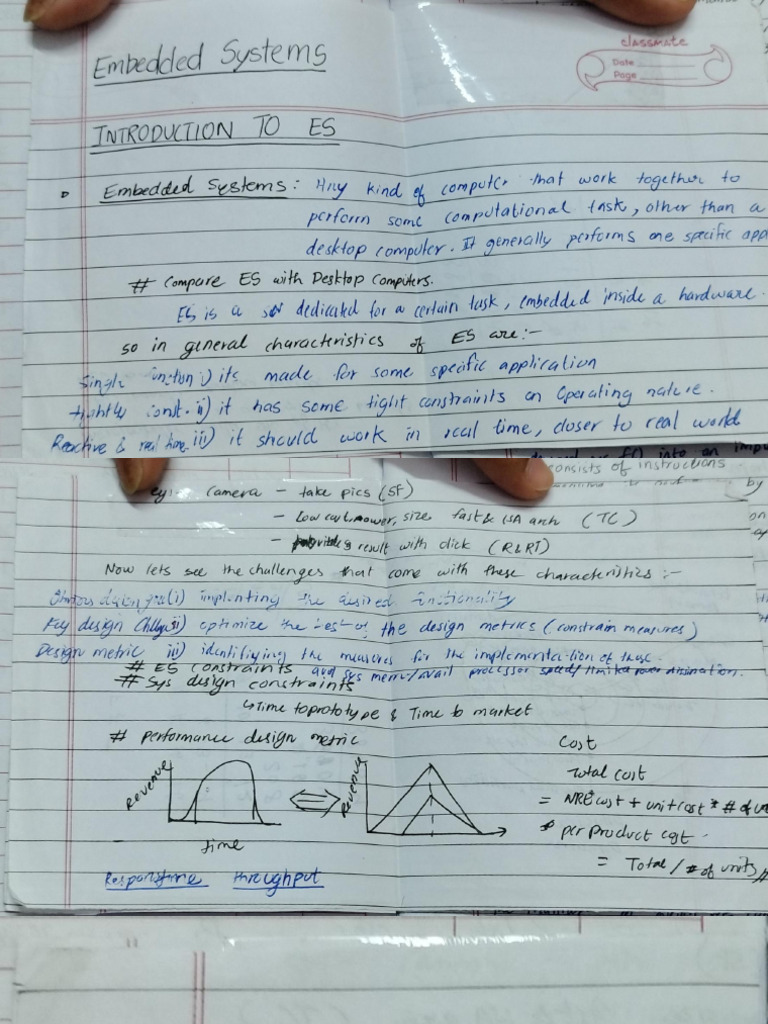 Embedded Systems
classmate
Date
Page
INTRODUCTION TO ES
Embedded Systems: Any kind of computer that work together to
perform some computational task, other than a
desktop computer. It generally performs one specific app
# Compare ES with Desktop Computers.
ES is a dedicated for a certain task, embedded inside a hardware.
so in general characteristics of ES are:-
Single i) its made for some specific application
tightly const. ii) it has some tight constraints on Operating nature.
Reactive & real time iii) it should work in real time, closer to real world
into an
consists of instructions
by
eg: camera - take pics (SF)
- low cost, power, size fast & arch (TC)
- result with click (R&RT)
Now lets see the challenges that come with these characteristics:-
Obvious design goal i) implenting the desired functionality
Key design ii) optimize the of the design metrics (constrain measures)
Design metric iii) identifiying the measures for the implementation of these.
# ES constraints and sys mem/avail processor
# Sys design constraints
↳ Time to prototype & Time to market
# performance design metric
Revenue
time
Revenue
Cost
Total cost
= NRE cost + unit cost * # of
* per product cost
= Total / # of units //
Response time throughput